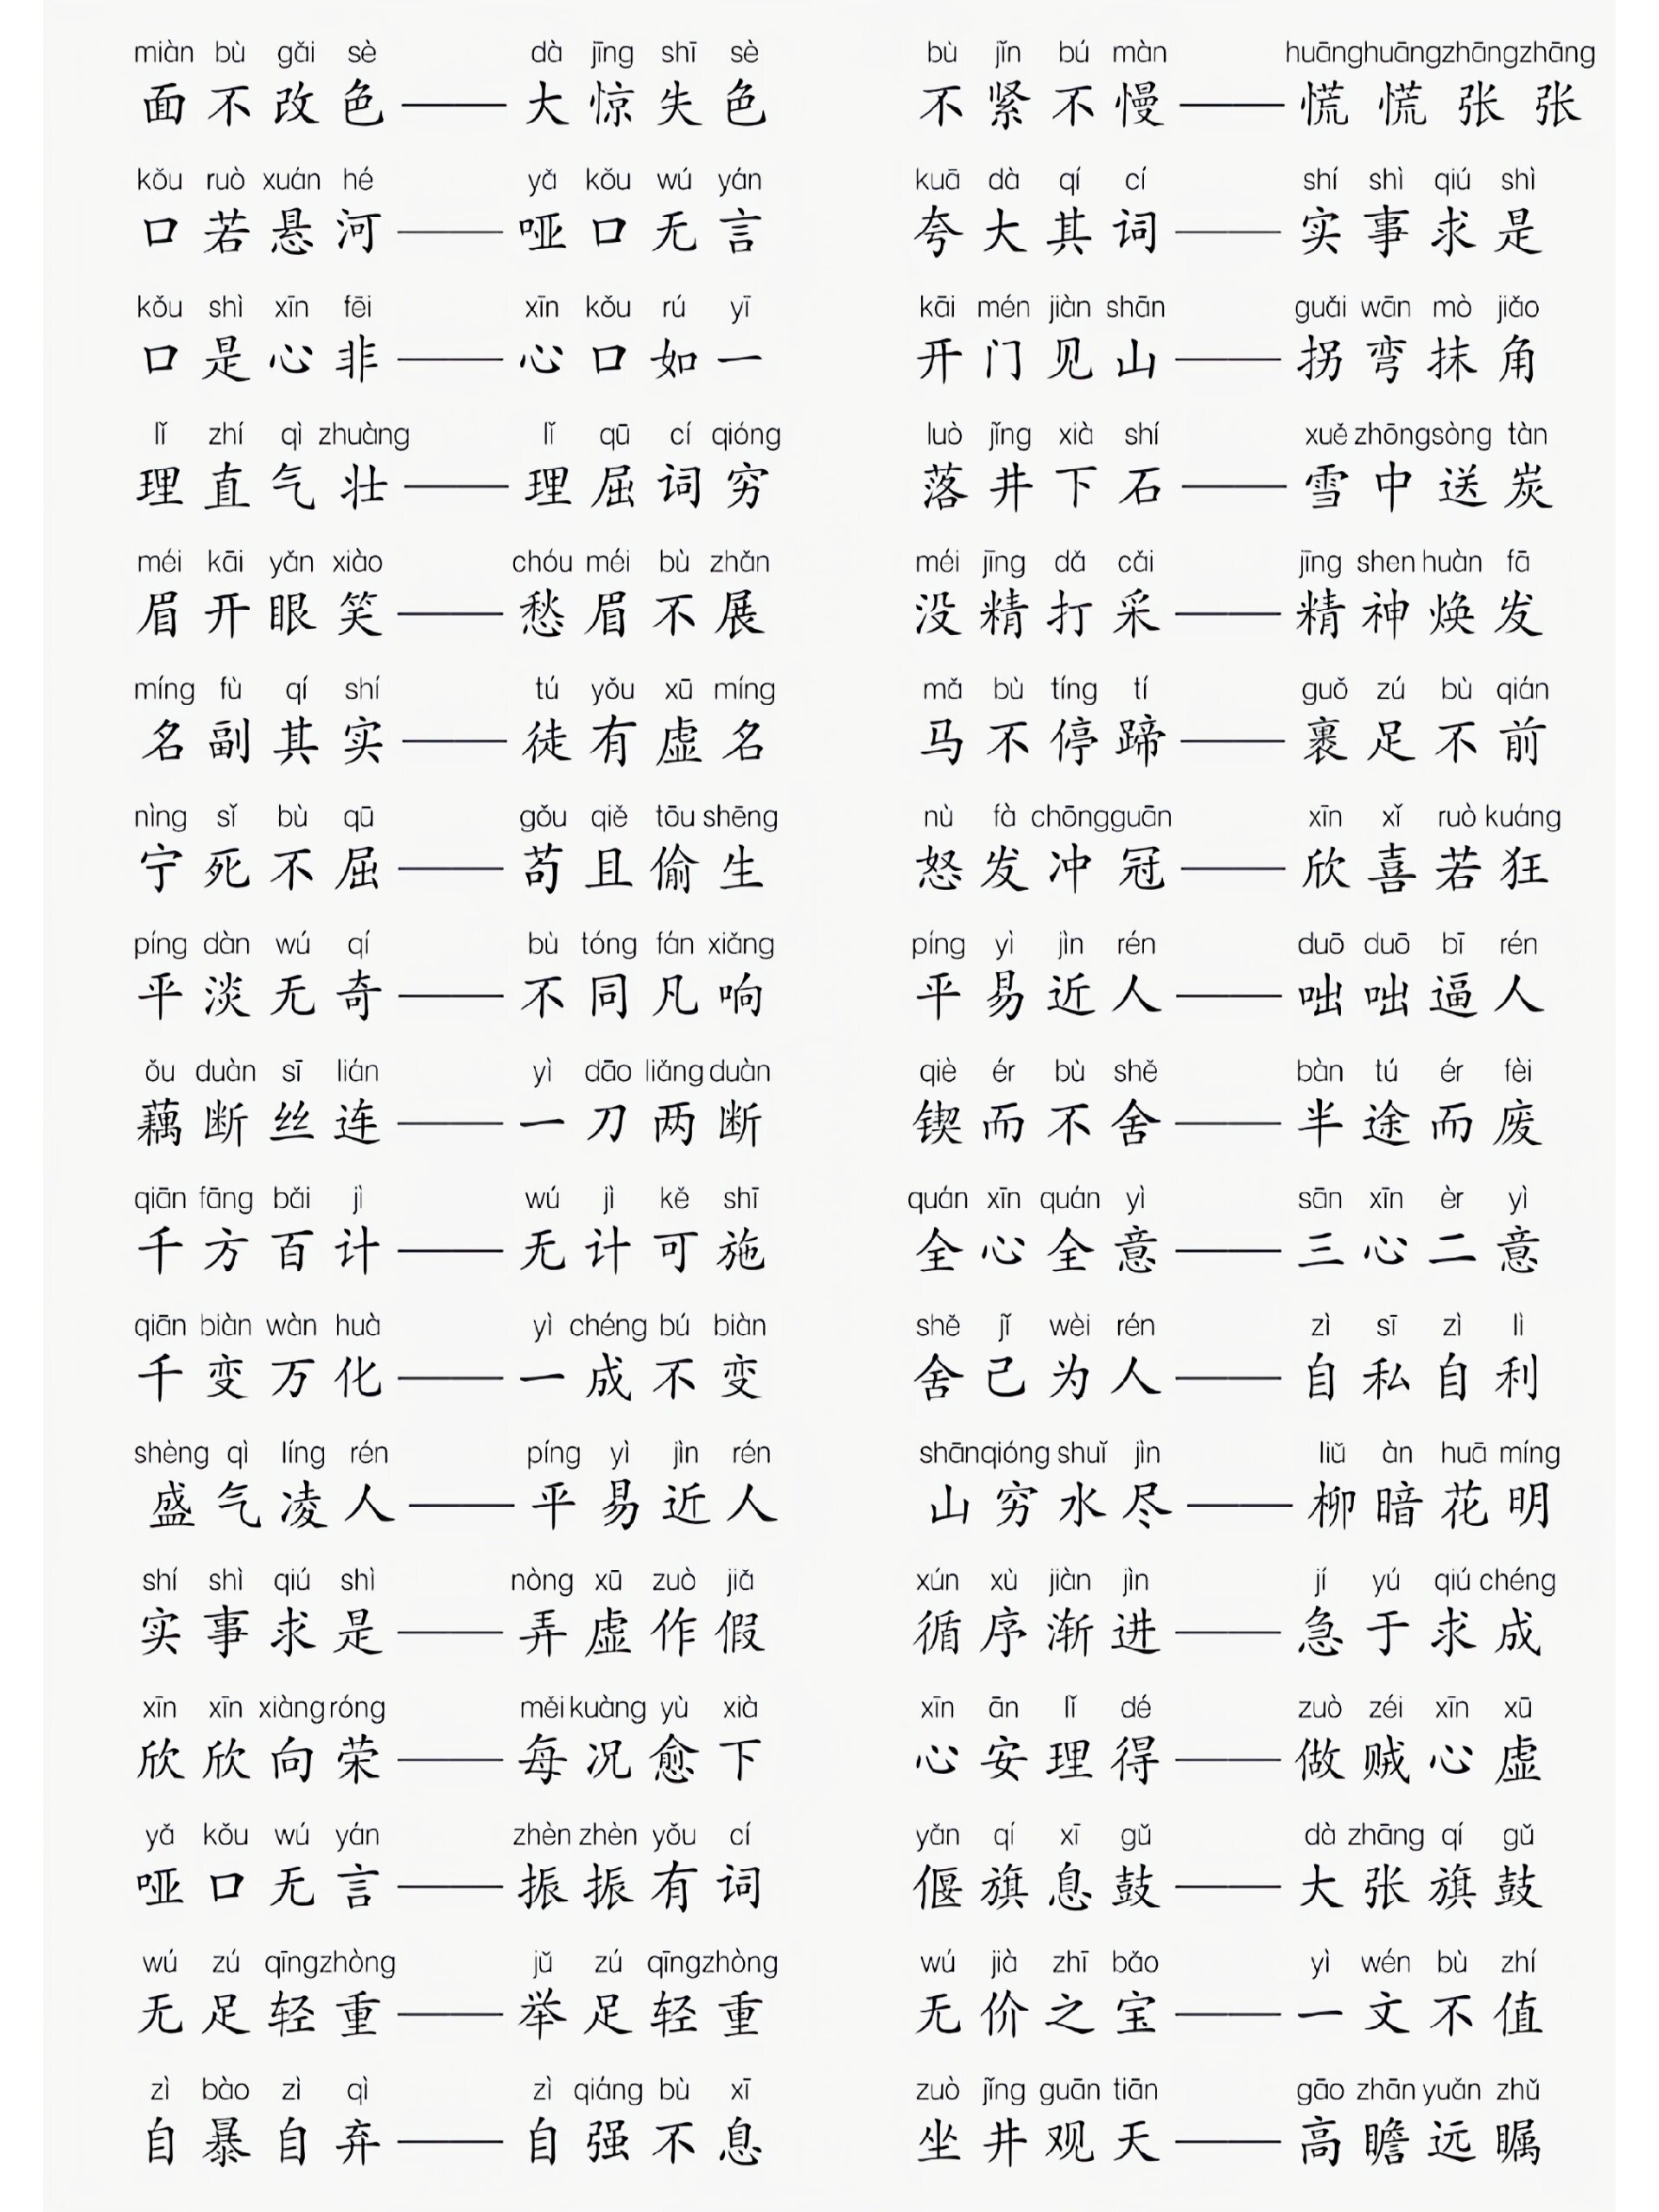 miàn bù gǎi sè dà jīng shī sè bù jǐn bú màn huānghuāngzhāngzhāng
面不改色——大惊失色 不紧不慢——慌慌张张
kǒu ruò xuán hé yǎ kǒu wú yán kuā dà qí cí shí shì qiú shì
口若悬河——哑口无言 夸大其词——实事求是
kǒu shì xīn fēi xīn kǒu rú yī kāi mén jiàn shān guǎi wān mò jiǎo
口是心非——心口如一 开门见山——拐弯抹角
lǐ zhí qì zhuàng lǐ qū cí qióng luò jǐng xià shí xuě zhōngsòng tàn
理直气壮——理屈词穷 落井下石——雪中送炭
méi kāi yǎn xiào chóu méi bù zhǎn méi jīng dǎ cǎi jīng shen huàn fā
眉开眼笑——愁眉不展 没精打采——精神焕发
míng fù qí shí tú yǒu xū míng mǎ bù tíng tí guǒ zú bù qián
名副其实——徒有虚名 马不停蹄——裹足不前
nìng sǐ bù qū gǒu qiě tōu shēng nù fà chōngguān xīn xǐ ruò kuáng
宁死不屈——苟且偷生 怒发冲冠——欣喜若狂
píng dàn wú qí bù tóng fán xiǎng píng yì jìn rén duō duō bī rén
平淡无奇——不同凡响 平易近人——咄咄逼人
ǒu duàn sī lián yì dāo liǎng duàn qiè ér bù shě bàn tú ér fèi
藕断丝连——一刀两断 锲而不舍——半途而废
qiān fāng bǎi jì wú jì kě shī quán xīn quán yì sān xīn èr yì
千方百计——无计可施 全心全意——三心二意
qiān biàn wàn huà yì chéng bú biàn shě jǐ wèi rén zì sī zì lì
千变万化——一成不变 舍己为人——自私自利
shèng qì líng rén píng yì jìn rén shānqióng shuǐ jìn liǔ àn huā míng
盛气凌人——平易近人 山穷水尽——柳暗花明
shí shì qiú shì nòng xū zuò jiǎ xún xù jiàn jìn jí yú qiú chéng
实事求是——弄虚作假 循序渐进——急于求成
xīn xīn xiàng róng měi kuàng yù xià xīn ān lǐ dé zuò zéi xīn xū
欣欣向荣——每况愈下 心安理得——做贼心虚
yǎ kǒu wú yán zhèn zhèn yǒu cí yǎn qí xī gǔ dà zhāng qí gǔ
哑口无言——振振有词 偃旗息鼓——大张旗鼓
wú zú qīngzhòng jǔ zú qīngzhòng wú jià zhī bǎo yì wén bù zhí
无足轻重——举足轻重 无价之宝——一文不值
zì bào zì qì zì qiáng bù xī zuò jǐng guān tiān gāo zhān yuǎn zhǔ
自暴自弃——自强不息 坐井观天——高瞻远瞩